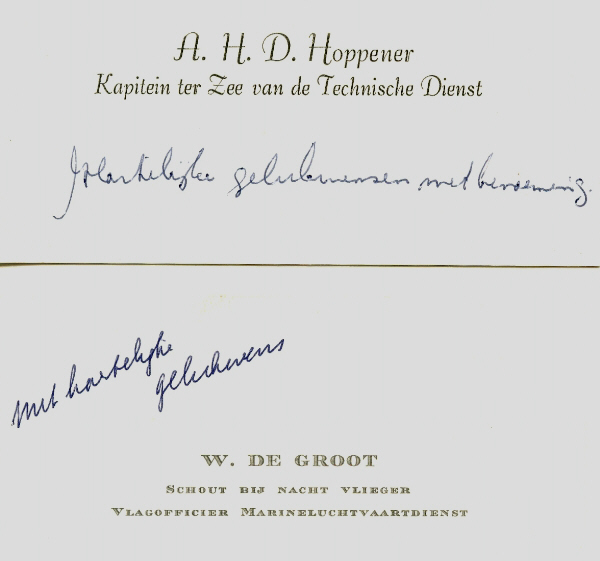 A. H. D. Hoppener
Kapitein ter Zee van de Technische Dienst
Hartelijke gelukwensen met benoeming.
Met hartelijke
gelukwens
W. DE GROOT
SCHOUT BIJ NACHT VLIEGER
VLAGOFFICIER MARINELUCHTVAARTDIENST